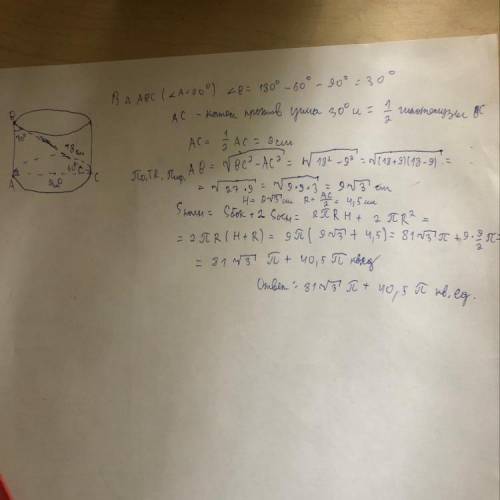 В △ ABC (∠A=90°) ∠B = 180° - 60° - 90° = 30°
AC - катет против угла 30° и = 1/2 гипотенузы BC
AC = 1/2 AC = 9 см
По т. Пиф. AB = √BC² - AC² = √18² - 9² = √(18+9)(18-9) =
= √27·9 = √9·9·3 = 9√3 см
H = 9√3 см R = AC/2 = 4,5 см
Sполн = Sбок + 2 Sосн = 2πRH + 2πR² =
= 2πR(H+R) = 9π(9√3 + 4,5) = 81√3π + 9·9/2π =
= 81√3 π + 40,5 π кв.ед
Ответ: 81√3 π + 40,5 π кв.ед.
B
18 см
60°
A
C